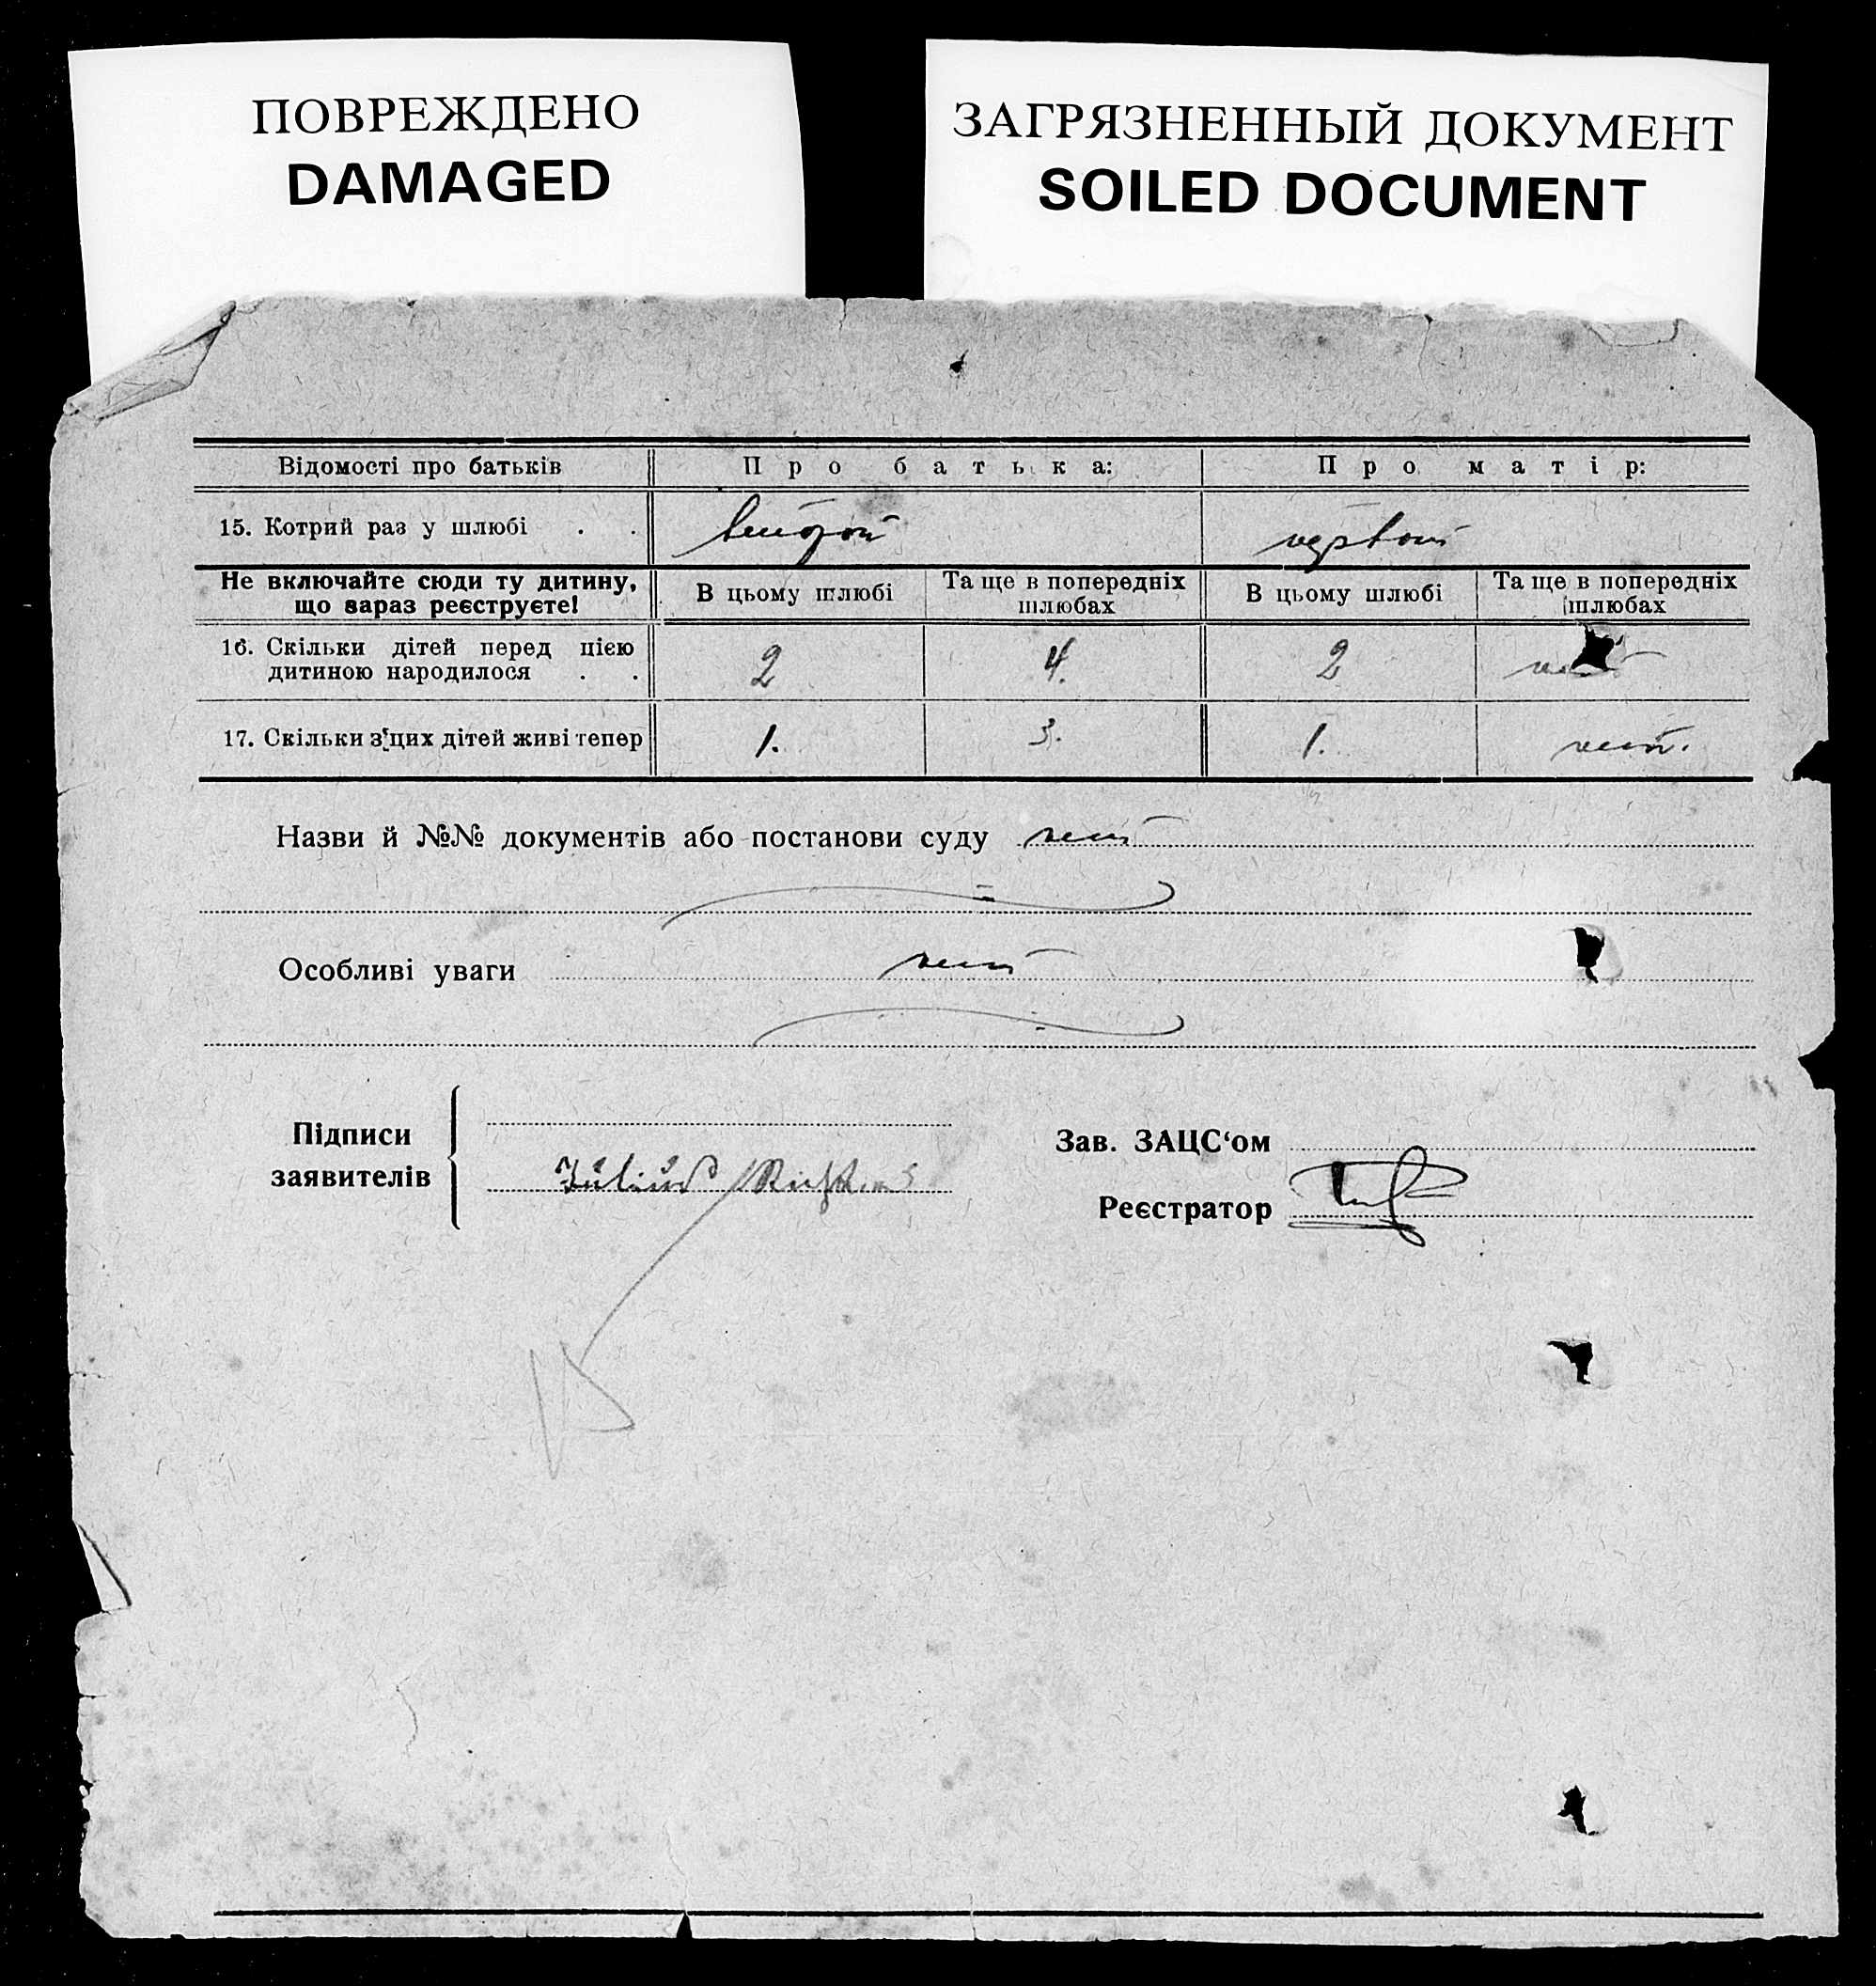 ПОВРЕЖДЕНО
DAMAGED
ЗАГРЯЗНЕННЫЙ ДОКУМЕНТ
SOILED DOCUMENT
Відомості про батьків Про батька: Про матір:
15. Котрий раз у шлюбі . . второй первый
Не включайте сюди ту дитину, що зараз реєструєте! В цьому шлюбі Та ще в попередніх шлюбах В цьому шлюбі Та ще в попередніх шлюбах
16. Скільки дітей перед цією
дитиною народилося . . 2 4. 2
17. Скільки з цих дітей живі тепер 1. 3. 1. нет.
Назви й №№ документів або постанови суду нет
Особливі уваги нет
Підписи
заявителів
Julius
Зав. ЗАЦС‘ом
Реєстратор